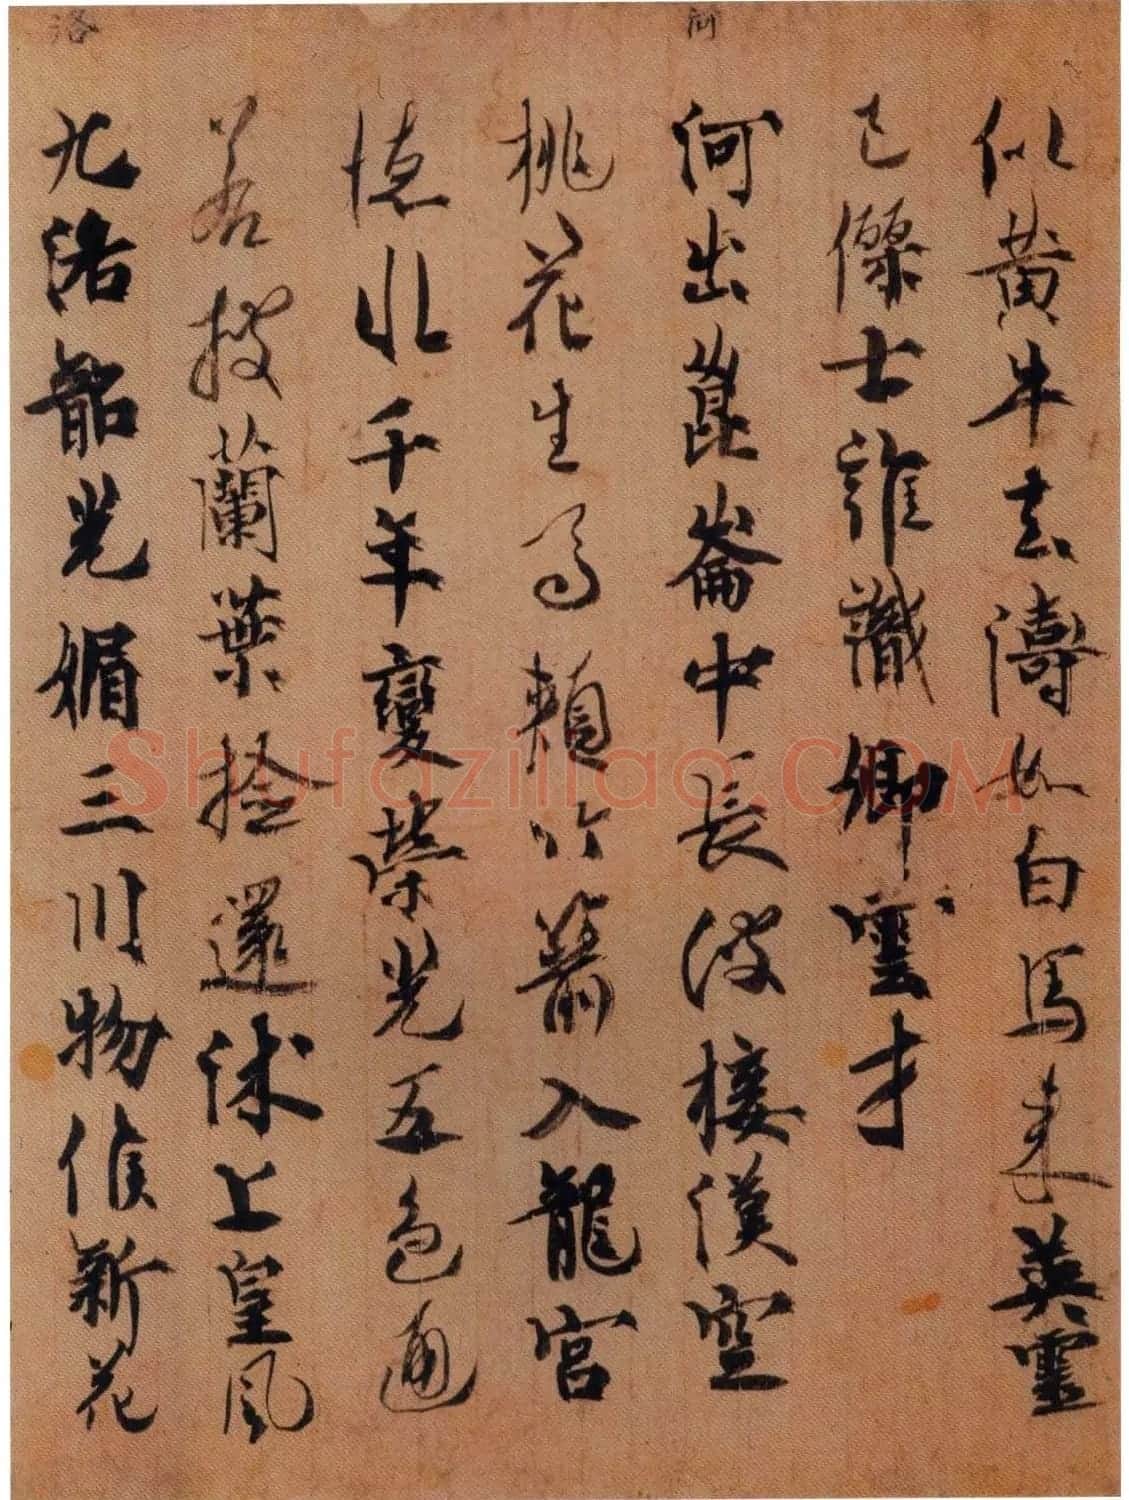 似黃牛去濤如白馬来英靈
已傑士誰識卿雲才
河
河出崑崙中長波接漢空
桃花生馬頬竹箭入龍宮
徳水千年變榮光五色通
若披蘭葉撿還沐上皇風
洛
九洛韶光媚三川物候新花
Shufaziliao.COM